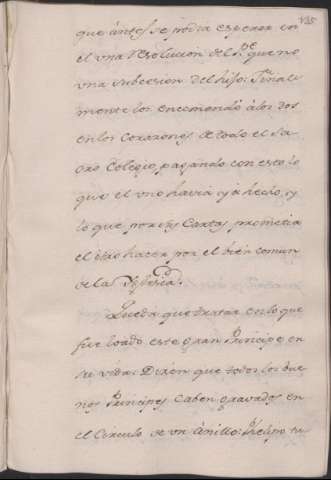 que ántes se podia esperar en
el vna resolucion del Pe. que no
vna subcesion del hijo: Final-
mente los encomendó á los dos
en los corazones de todo el Sa-
cro Colegio, pagando con esto lo
que el vno havia ya hecho, y
lo que por sus Cartas prometia
el otro hacer por el bien comun
de la Yglesia.
Queda que tratar en lo que
fue loado este gran Principe en
su vida: Dixen que todos los bue-
nos Principes caben gravados en
el Circulo de vn Anillo: Phelipo tu